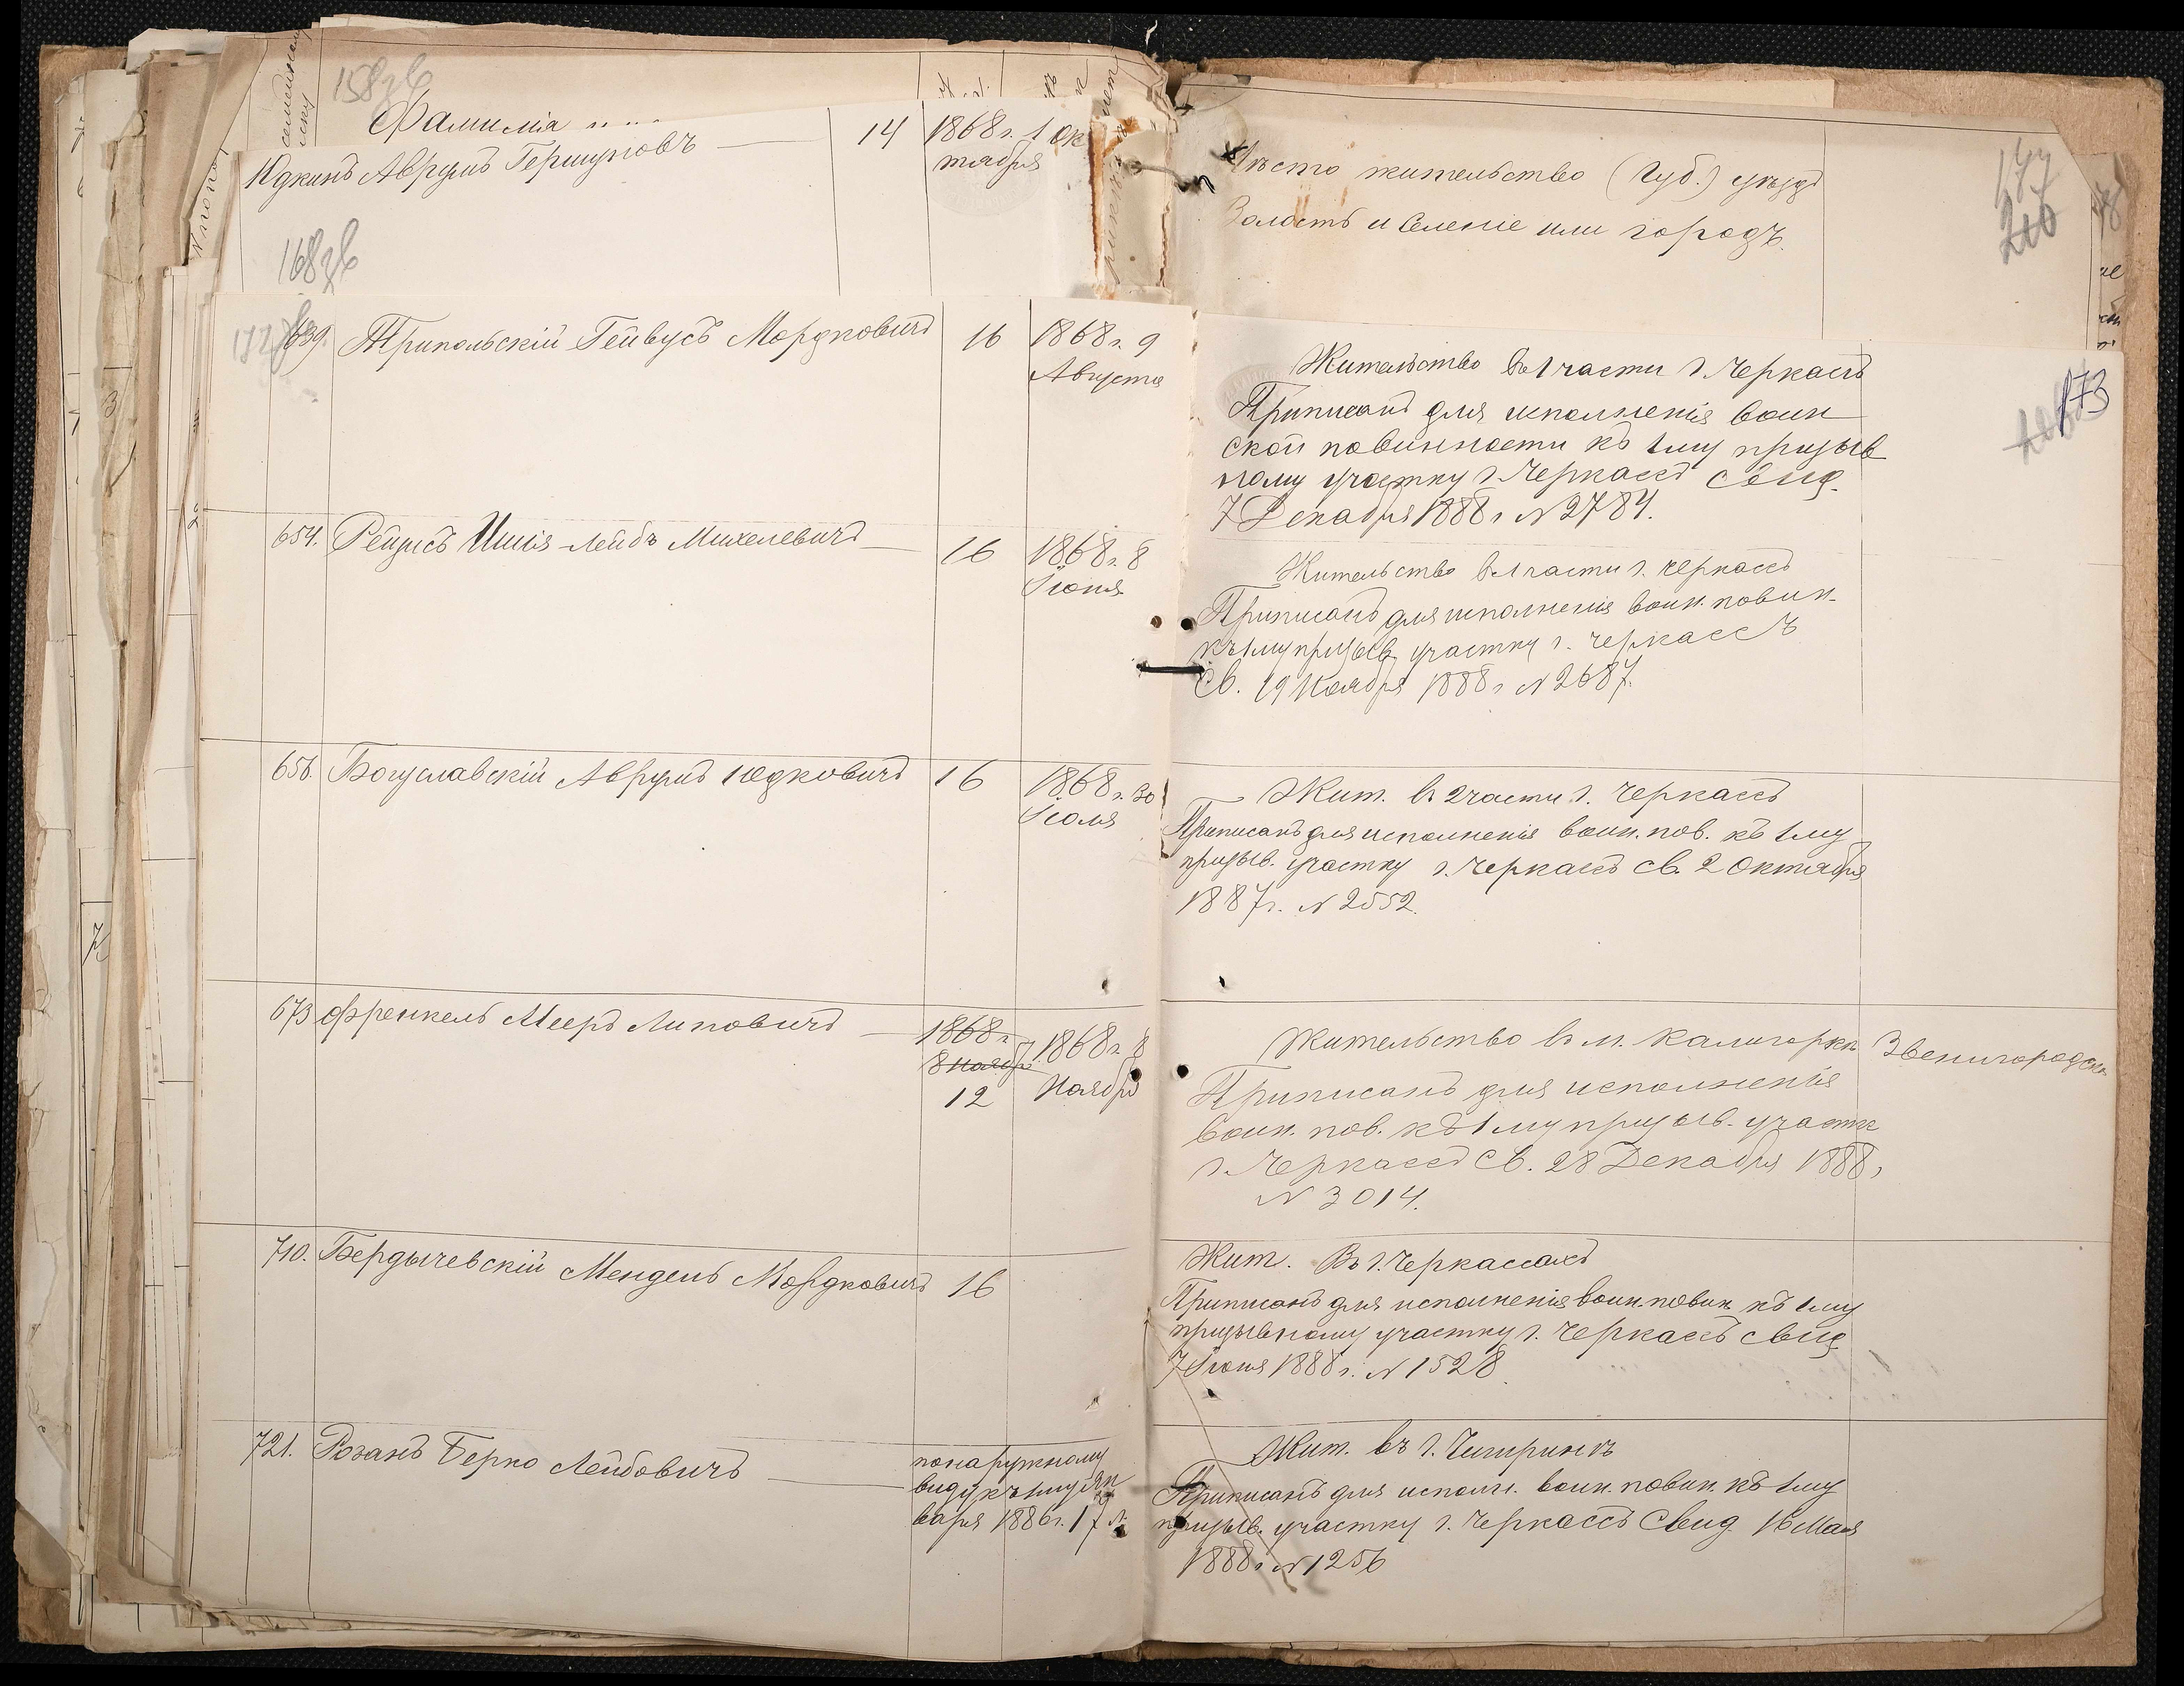 158 зв
Фамилія
Юдкинъ Аврумъ Гершуновъ 14 1868 г. 1 Ок
тября
168 зв
Мѣсто жительство (Губ.) уѣздъ
Волость и Селеніе или городъ.
639. Трипольскій Гейвусъ Мордковичъ 16 1868 г. 9
Августа
654. Лейбъ Михелевичъ 16 1868 г. 8
Іюня
656. Богуславскій Аврумъ Юдковичъ 16 1868 г. 30
Іюля
673 Френкель Мееръ Липовичъ 1868 г. 1868 г. 8
8 Ноябр Ноября
12
710. Бердычевскій Мендель Мордковичъ 16
721. Розанъ Берко Лейбовичъ
по наружному
виду къ 1му Ян
варя 1886 г. 17 л.
173
Жительство въ 1 части г. Черкассъ
Приписанъ для исполненія воин
ской повинности къ 1му призыв
ному участку г. Черкассъ Свид.
7 Декабря 1888 г. N 2784.
Жительство въ 1 части г. Черкассъ
Приписанъ для исполненія воин. повин.
къ 1му призыв. участку г. Черкассъ
Св. 19 Ноября 1888 г. N 2687.
Жит. въ 2 части г. Черкассъ
Приписанъ для исполненія воин. пов. къ 1му
призыв. участку г. Черкассъ Св. 2 Октября
1887 г. N 2552.
Жительство въ м. Калигорки Звенигородск
Приписанъ для исполненія
воин. пов. къ 1му призыв. участку
г. Черкассъ Св. 28 Декабря 1888 г.
N 3014.
Жит. Въ г. Черкассахъ
Приписанъ для исполненія воин. повин. къ 1му
призывному участку г. Черкассъ Свид
7 Іюня 1888 г. N 1528
Жит. въ г. Чигиринѣ
Приписанъ для исполн. воин. повин. къ 1му
призыв. участку г. Черкассъ Свид. 16 Мая
1888 г. N 1256